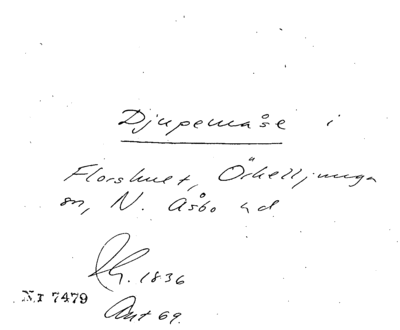 Djupemåse i
Florshult, Örkelljunga
sn, N. Åsbo hd
1836
Nr 7479
Ant 69.